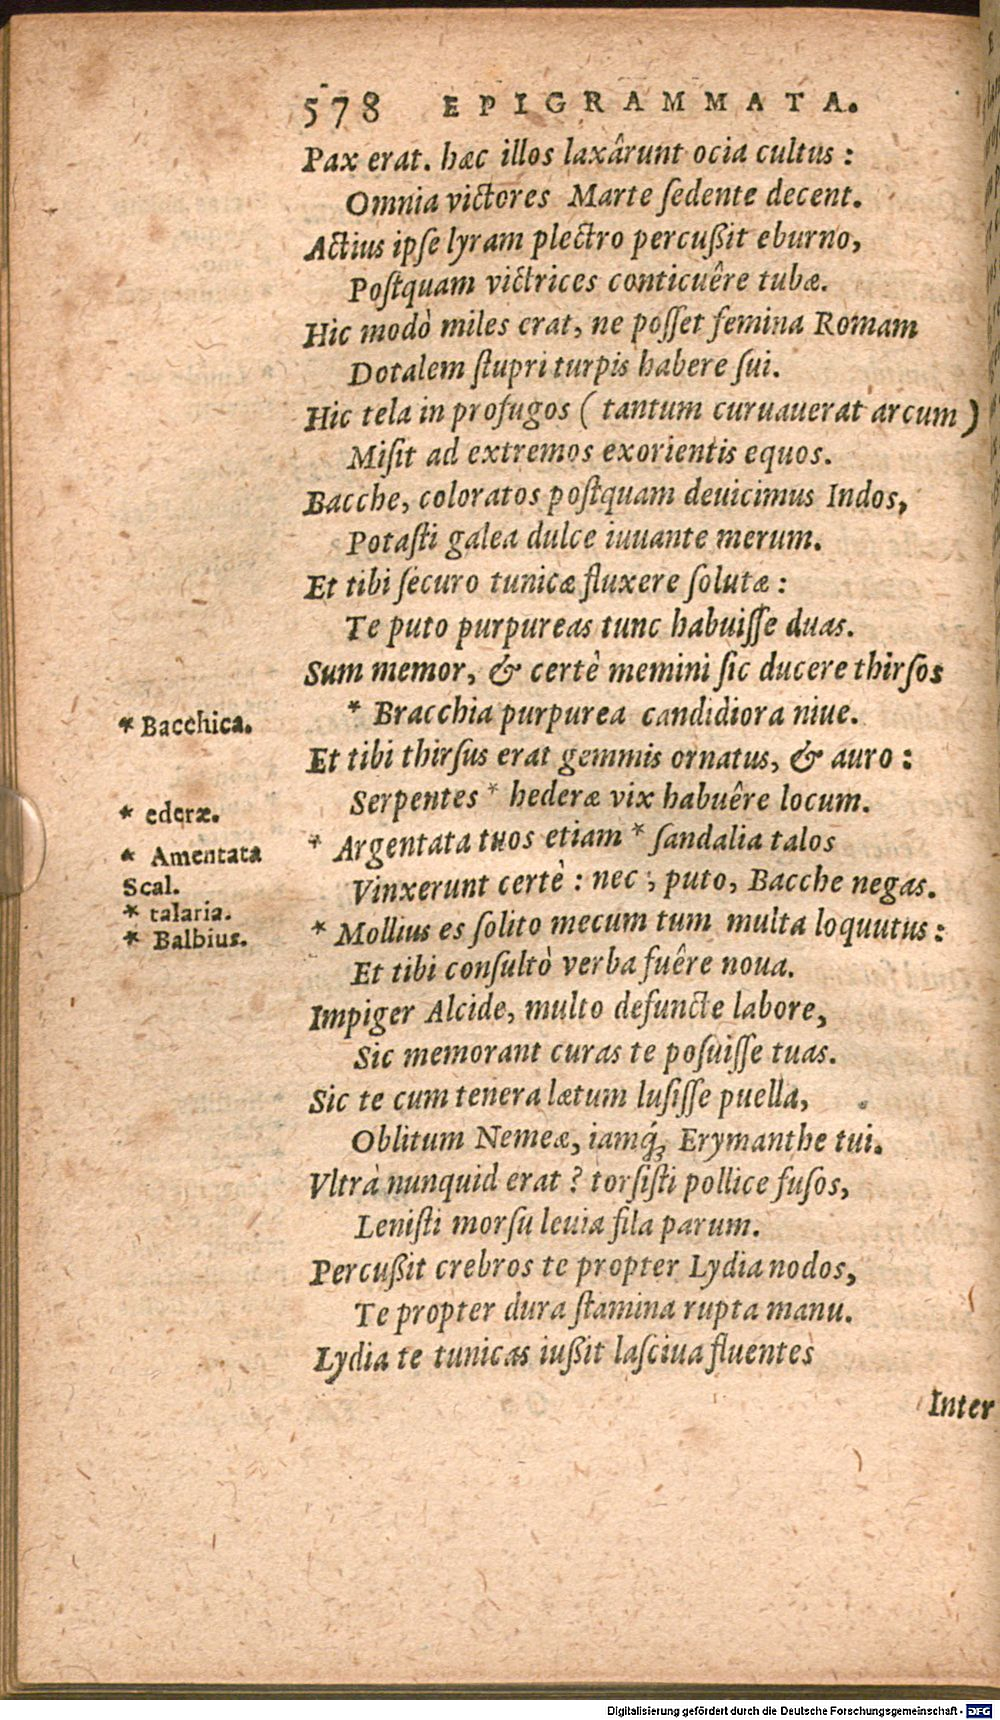 578 EPIGRAMMATA.
Pax erat. hæc illos laxârunt ocia cultus :
Omnia victores Marte ſedente decent.
Actius ipſe lyram plectro percußit eburno,
Poſtquam victrices conticuêre tubæ.
Hic modò miles erat, ne poſſet femina Romam
Dotalem ſtupri turpis habere ſui.
Hic tela in profugos ( tantum curuauerat arcum )
Miſit ad extremos exorientis equos.
Bacche, coloratos poſtquam deuicimus Indos,
Potaſti galea dulce iuuante merum.
Et tibi ſecuro tunicæ fluxere ſolutæ :
Te puto purpureas tunc habuiſſe duas.
Sum memor, & certè memini ſic ducere thirſos
* Bracchia purpurea candidiora niue.
* Bacchica.
Et tibi thirſus erat gemmis ornatus, & auro :
Serpentes * hederæ vix habuêre locum.
* ederæ.
* Argentata tuos etiam * ſandalia talos
* Amentata
Scal.
Vinxerunt certè : nec , puto, Bacche negas.
* talaria.
* Mollius es ſolito mecum tum multa loquutus :
* Balbius.
Et tibi conſultò verba fuêre noua.
Impiger Alcide, multo defuncte labore,
Sic memorant curas te poſuiſſe tuas.
Sic te cum tenera lætum luſiſſe puella,
Oblitum Nemeæ, iamq́ꝫ Erymanthe tui.
Vltrà nunquid erat ? torſiſti pollice fuſos,
Leniſti morſu leuia fila parum.
Percußit crebros te propter Lydia nodos,
Te propter dura ſtamina rupta manu.
Lydia te tunicas iußit laſciua fluentes
Inter
Digitalisierung gefördert durch die Deutsche Forschungsgemeinschaft - DFG